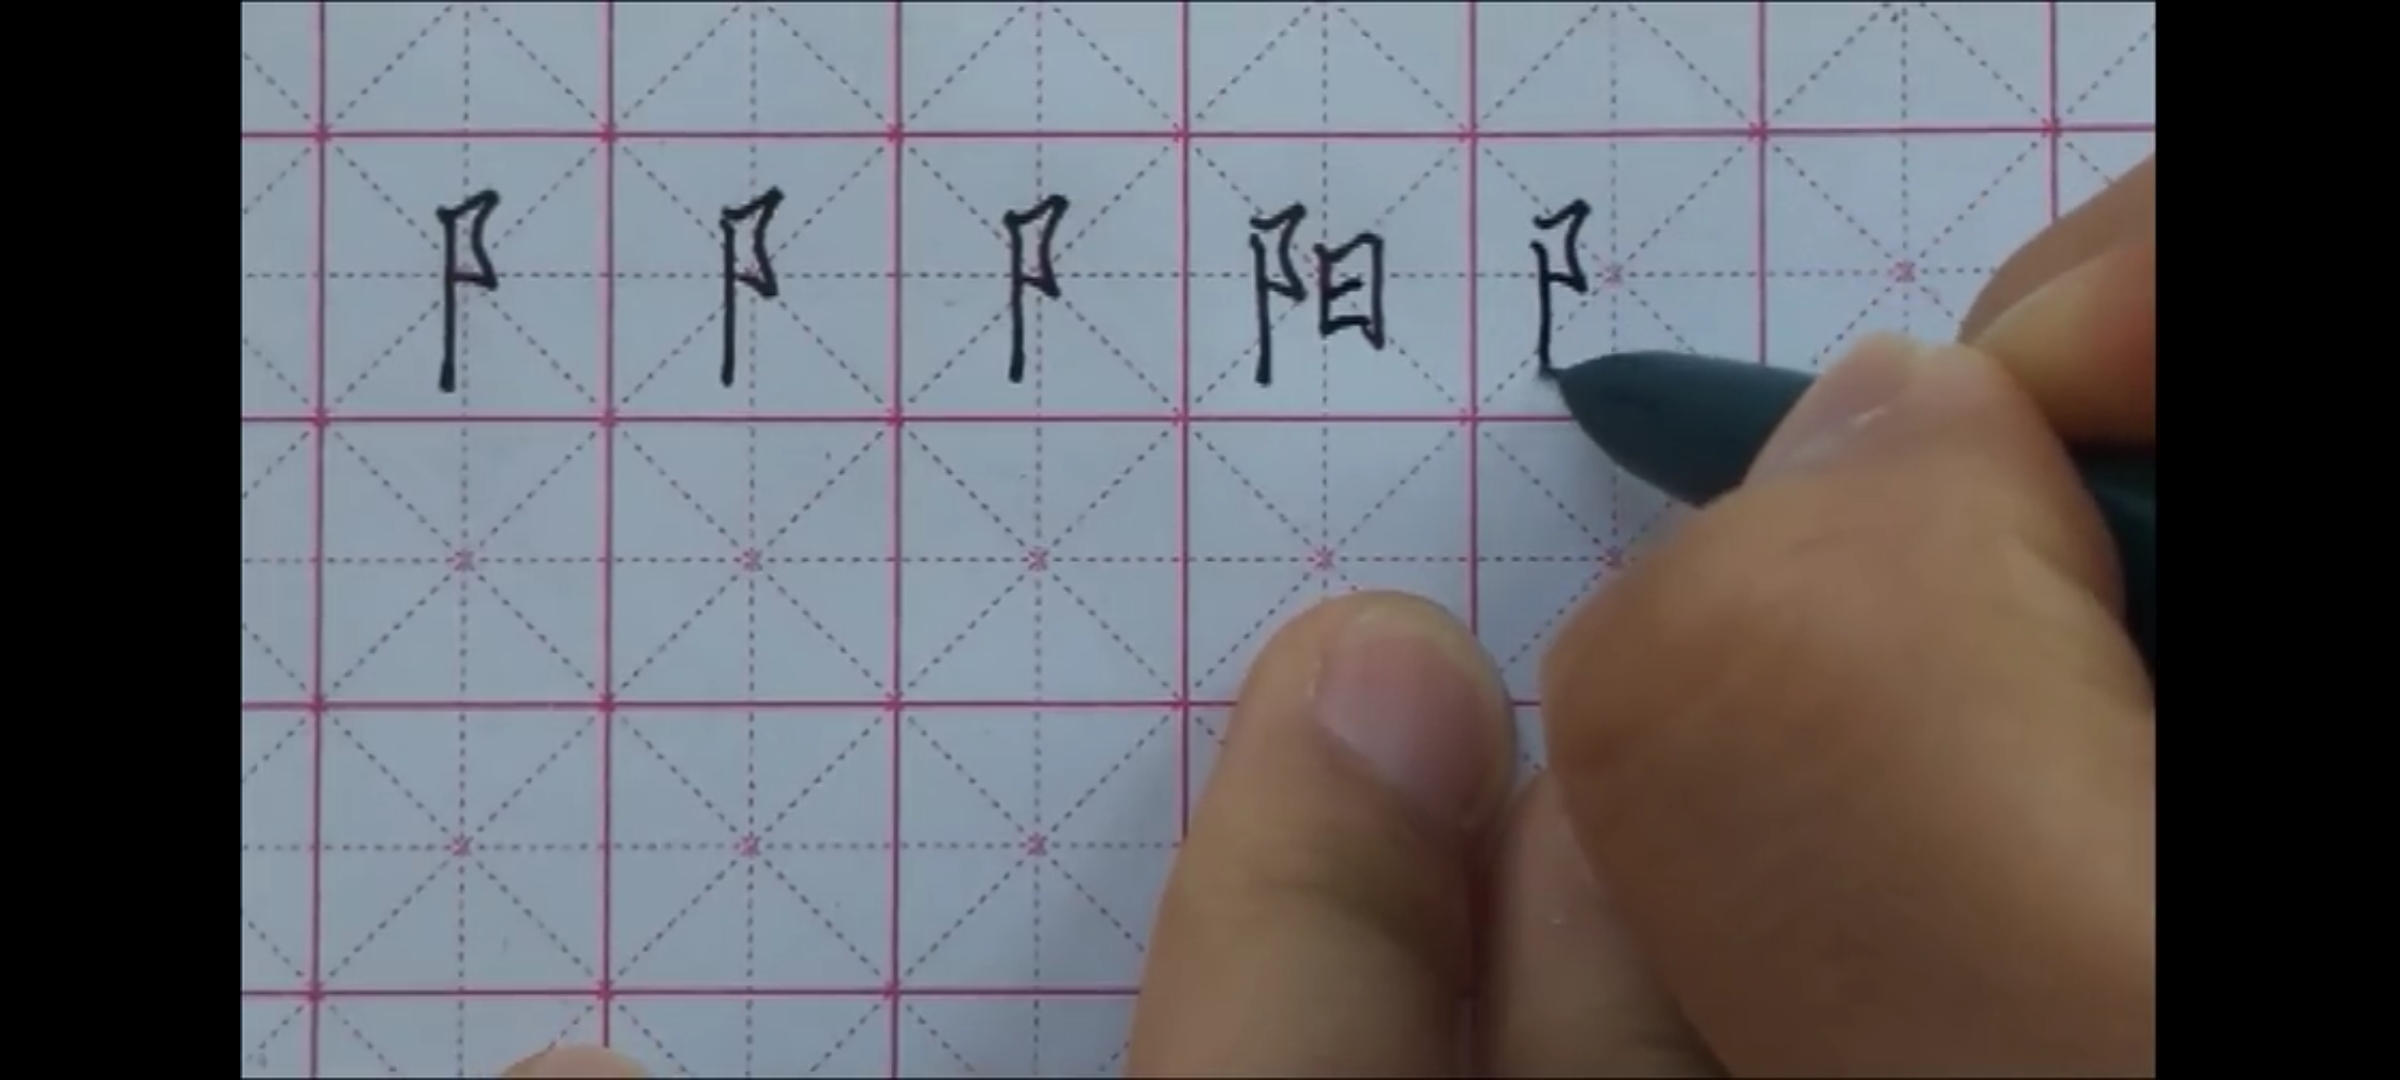 阝 阝 阝 阳 阝